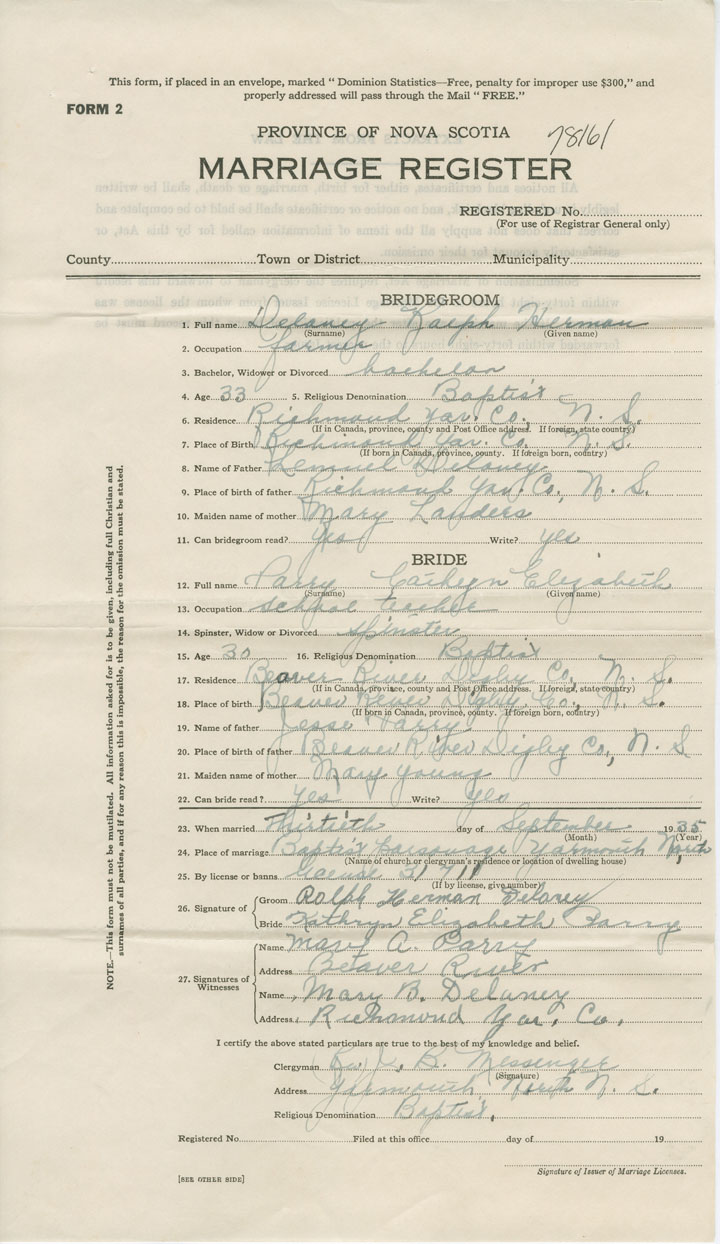 This form, if placed in an envelope, marked " Dominion Statistics—Free, penalty for improper use $300," and
properly addressed will pass through the Mail " FREE."
FORM 2
PROVINCE OF NOVA SCOTIA
MARRIAGE REGISTER
REGISTERED No.
(For use of Registrar General only)
County Town or District Municipality
BRIDEGROOM
1. Full name Delaney Ralph Herman
(Surname) (Given name)
2. Occupation farmer
3. Bachelor, Widower or Divorced bachelor
4. Age 33 5. Religious Denomination Baptist
6. Residence Richmond Yar. Co. N. S.
(If in Canada, province, county and Post Office address. If foreign, state country)
7. Place of Birth Richmond Yar. Co. N. S.
(If born in Canada, province, county. If foreign born, country)
8. Name of Father Lemuel Delaney
9. Place of birth of father Richmond Yar. Co, N. S.
10. Maiden name of mother Mary Landers
11. Can bridegroom read? Yes Write? yes
BRIDE
12. Full name Parry Cathryn Elizabeth
(Surname) (Given name)
13. Occupation school teacher
14. Spinster, Widow or Divorced spinster
15. Age 30 16. Religious Denomination Baptist
17. Residence Beaver River Digby Co, N. S.
(If in Canada, province, county and Post Office address. If foreign, state country)
18. Place of birth Beaver River Digby Co, N. S.
(If born in Canada, province, county. If foreign born, country)
19. Name of father Jesse Parry
20. Place of birth of father Beaver River Digby Co, N. S
21. Maiden name of mother Mary Young
22. Can bride read? Yes Write? Yes
23. When married thirtieth day of September 1935
(Month) (Year)
24. Place of marriage Baptist Parsonage Yarmouth North
(Name of church or clergyman's residence or location of dwelling house)
25. By license or banns License
(If by license, give number)
26. Signature of
Groom Ralph Herman Delaney
Bride Kathryn Elizabeth Parry
27. Signatures of Witnesses
Name Mary A. Parry
Address Beaver River
Name Mary B. Delaney
Address Richmond Yar. Co.
I certify the above stated particulars are true to the best of my knowledge and belief.
Clergyman Rev. J. B. Messenger
(Signature)
Address Yarmouth North N. S.
Religious Denomination Baptist.
Registered No. Filed at this office day of 19
Signature of Issuer of Marriage Licenses.
[SEE OTHER SIDE]
NOTE.—This form must not be mutilated. All information asked for is to be given, including full Christian and
surnames of all parties, and if for any reason this is impossible, the reason for the omission must be stated.